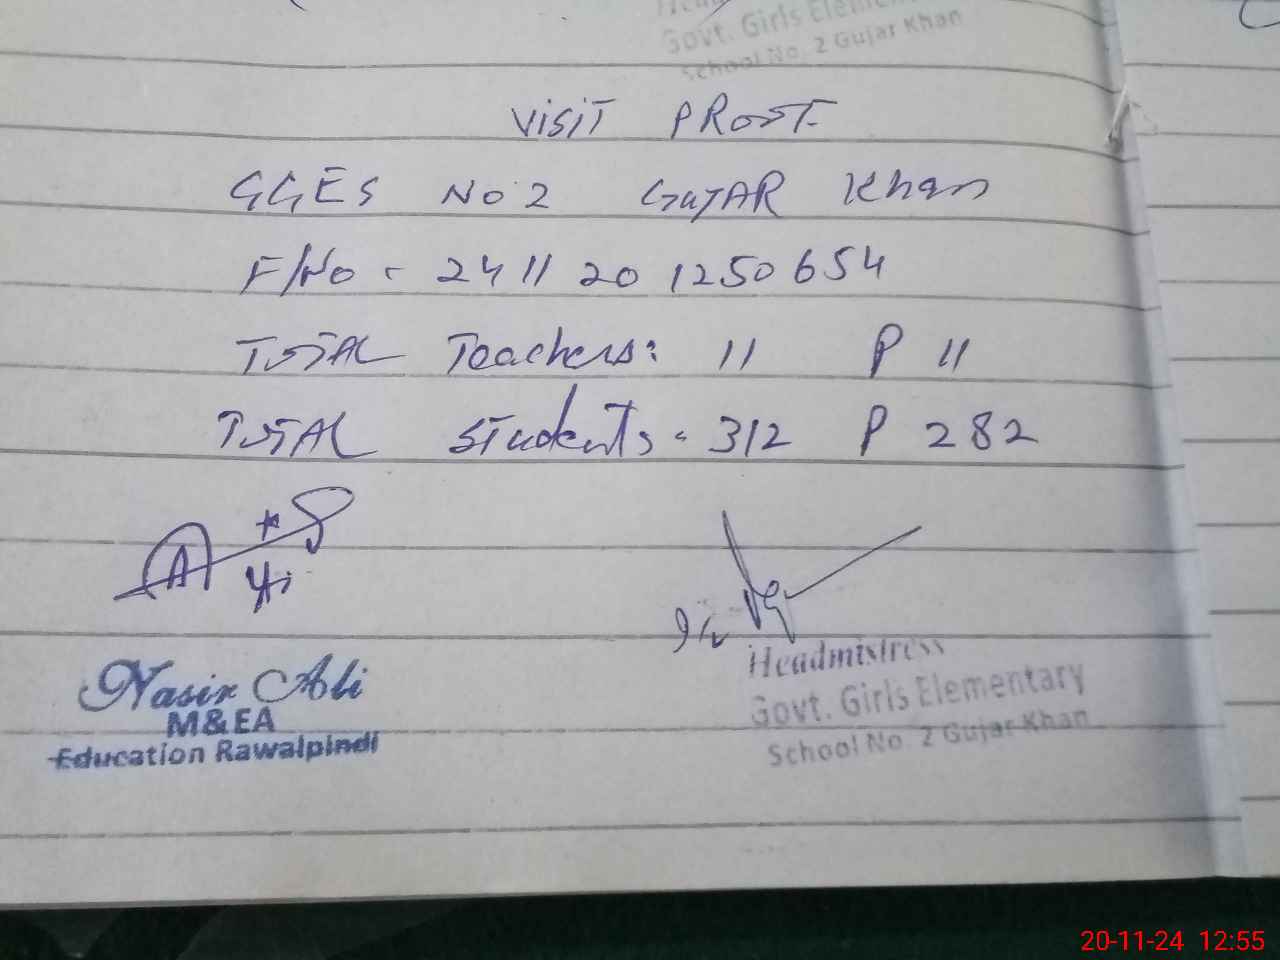 Govt. Girls Elem
School No. 2 Gujar Khan
VISIT PROST.
GGES No 2 GUJAR Khan
F/No - 2411 20 1250654
TOTAL Teachers: 11 P 11
TOTAL Students - 312 P 282
Nasir Ali
M&EA
Education Rawalpindi
Headmistress
Govt. Girls Elementary
School No. 2 Gujar Khan
20-11-24 12:55